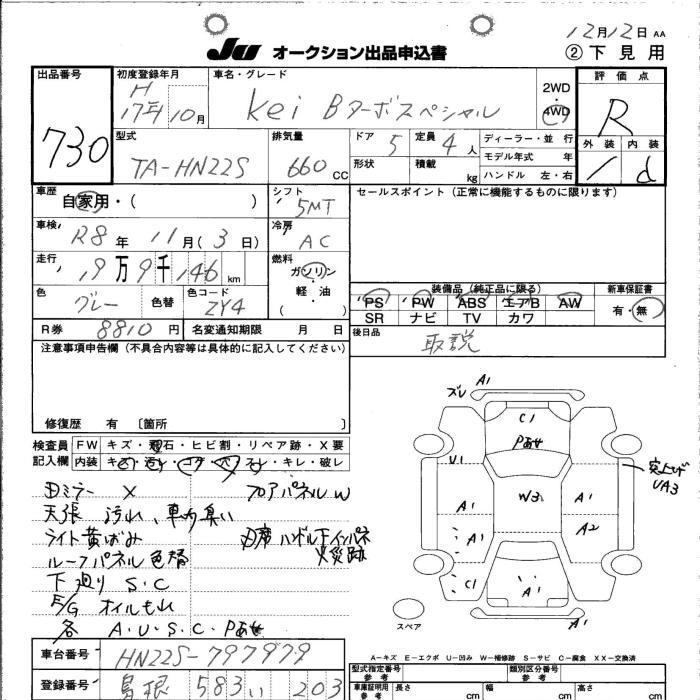 12月12日 AA
JU オークション出品申込書 ② 下見用
出品番号 730
初度登録年月 H 17年10月
車名・グレード Kei Bターボスペシャル
2WD 4WD
評価点 R
外装 内装 1 d
型式 TA-HN22S
排気量 660 CC
ドア 5 定員 4人
形状 積載 kg
ディーラー・並行
モデル年式 年
ハンドル 左・右
車歴 自家用・( )
シフト 5MT
セールスポイント(正常に機能するものに限ります)
車検 R8年11月(3日)
冷房 AC
走行 19万9千146 km
燃料 ガソリン 軽・油 ( )
色 グレー 色替 色コード ZY4
装備品(純正品に限る) 新車保証書
PS PW ABS エアB AW 有・無
SR ナビ TV カワ
R券 8810円 名変通知期限 月 日
後日品 取説
注意事項申告欄(不具合内容等は具体的に記入してください)
修復歴 有 〔箇所 〕
検査員 FW キズ・飛石・ヒビ割・リペア跡・X要
記入欄 内装
ミラー X フロアパネルW
天張 汚れ、車内臭い
ライト黄ばみ
ルーフパネル色替
下廻り S・C
E/G オイルもれ
各 A・U・S・C・Pあせ
ズレ A1
C1
Pあせ
U1
突上げ
UA3
W3
A1 A1
A1 A2
C1 A1
A1
スペア
A-キズ E-エクボ U-凹み W-補修跡 S-サビ C-腐食 XX-交換済
車台番号 HN22S-797979
登録番号 島根 583 い 203
型式指定番号 参考 類別区分番号 参考
車庫証明用 参考 長さ cm 幅 cm 高さ cm